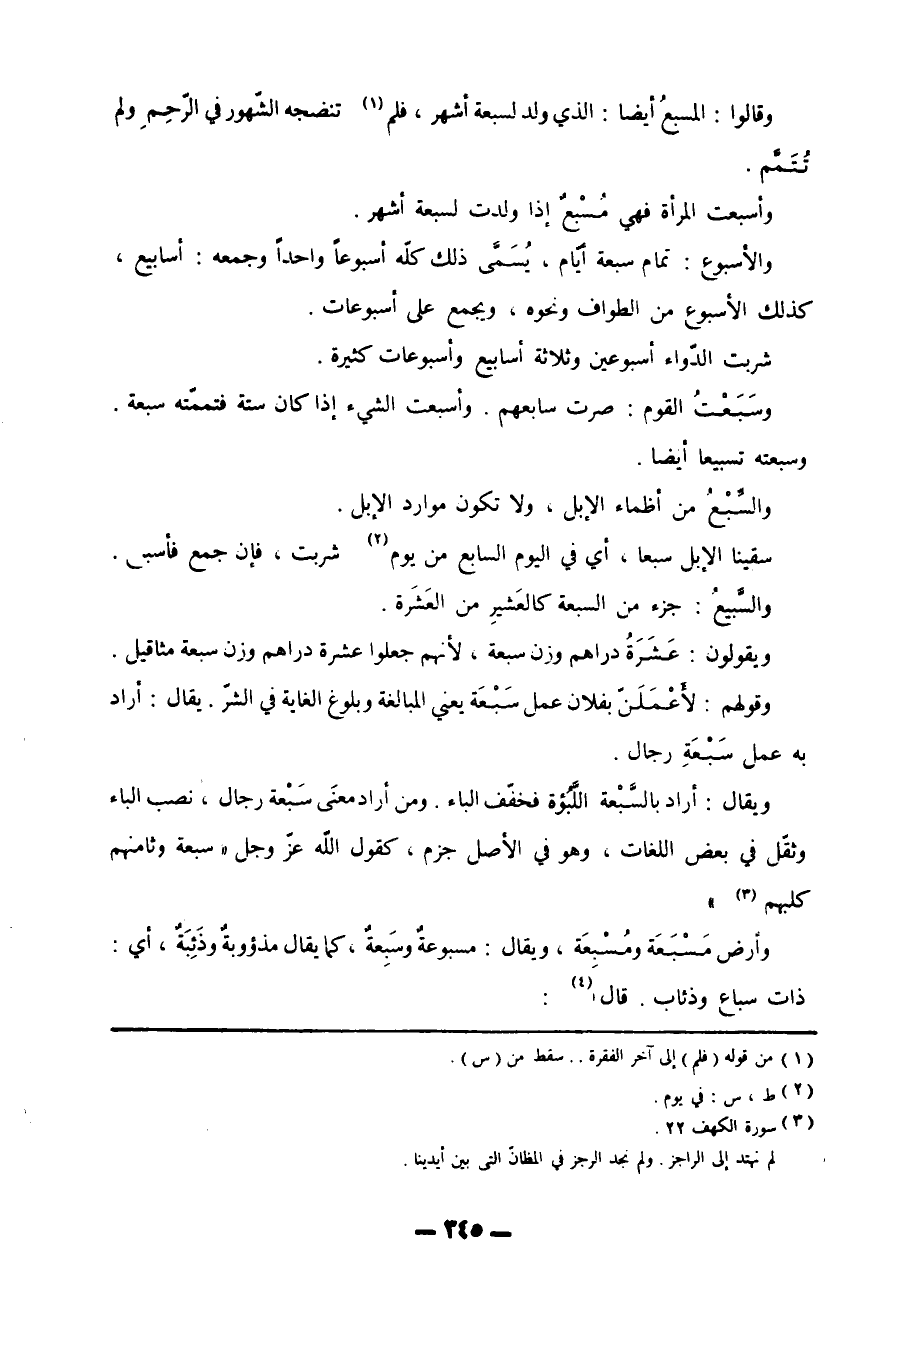 وقالوا : المسبعُ أيضا : الذي ولد لسبعة أشهر ، فلم (١) تنضجه الشّهور في الرّحِمِ ولم
تُتَمَّم .
وأسبعت المرأة فهي مُسْبِعٌ إذا ولدت لسبعة أشهر .
والأسبوع : تمام سبعة أيّام ، يُسَمَّى ذلك كلّه أسبوعاً واحداً وجمعه : أسابيع ،
كذلك الأسبوع من الطواف ونحوه ، ويجمع على أسبوعات .
شربت الدّواء أسبوعين وثلاثة أسابيع وأسبوعات كثيرة .
وسَبَعْتُ القوم : صرت سابعهم . وأسبعت الشيء إذا كان ستة فتممّته سبعة .
وسبعته تسبيعا أيضا .
والسِّبْعُ من أظماء الإبل ، ولا تكون موارد الإبل .
سقينا الإبل سبعا ، أي في اليوم السابع من يوم (٢) شربت ، فإن جمع فأسبس .
والسَّبيعُ : جزء من السبعة كالعَشيرِ من العَشَرة .
ويقولون : عَشَرَةُ دراهم وزن سبعة ، لأنهم جعلوا عشرة دراهم وزن سبعة مثاقيل .
وقولهم : لأَعْمَلَنّ بفلان عمل سَبْعَة يعني المبالغة وبلوغ الغاية في الشرّ . يقال : أراد
به عمل سَبْعَةِ رجال .
ويقال : أراد بالسَّبْعة اللَّبُؤة فخفّف الباء . ومن أراد معنَى سَبْعة رجال ، نصب الباء
وثقّل في بعض اللغات ، وهو في الأصل جزم ، كقول الله عزّ وجل « سبعة وثامنهم
كلبهم (٣) »
وأرض مَسْبَعَة ومُسْبِعَة ، ويقال : مسبوعةٌ وسَبِعةٌ ، كما يقال مذؤوبةٌ وذَئِبَةٌ ، أي :
ذات سباع وذئاب . قال (٤) :
(١) من قوله (فلم) إلى آخر الفقرة . . سقط من (س) .
(٢) ط ، س : في يوم .
(٣) سورة الكهف ٢٢ .
لم نهتد إلى الراجز . ولم نجد الرجز في المظانّ التى بين أيدينا .
— ٣٤٥ —